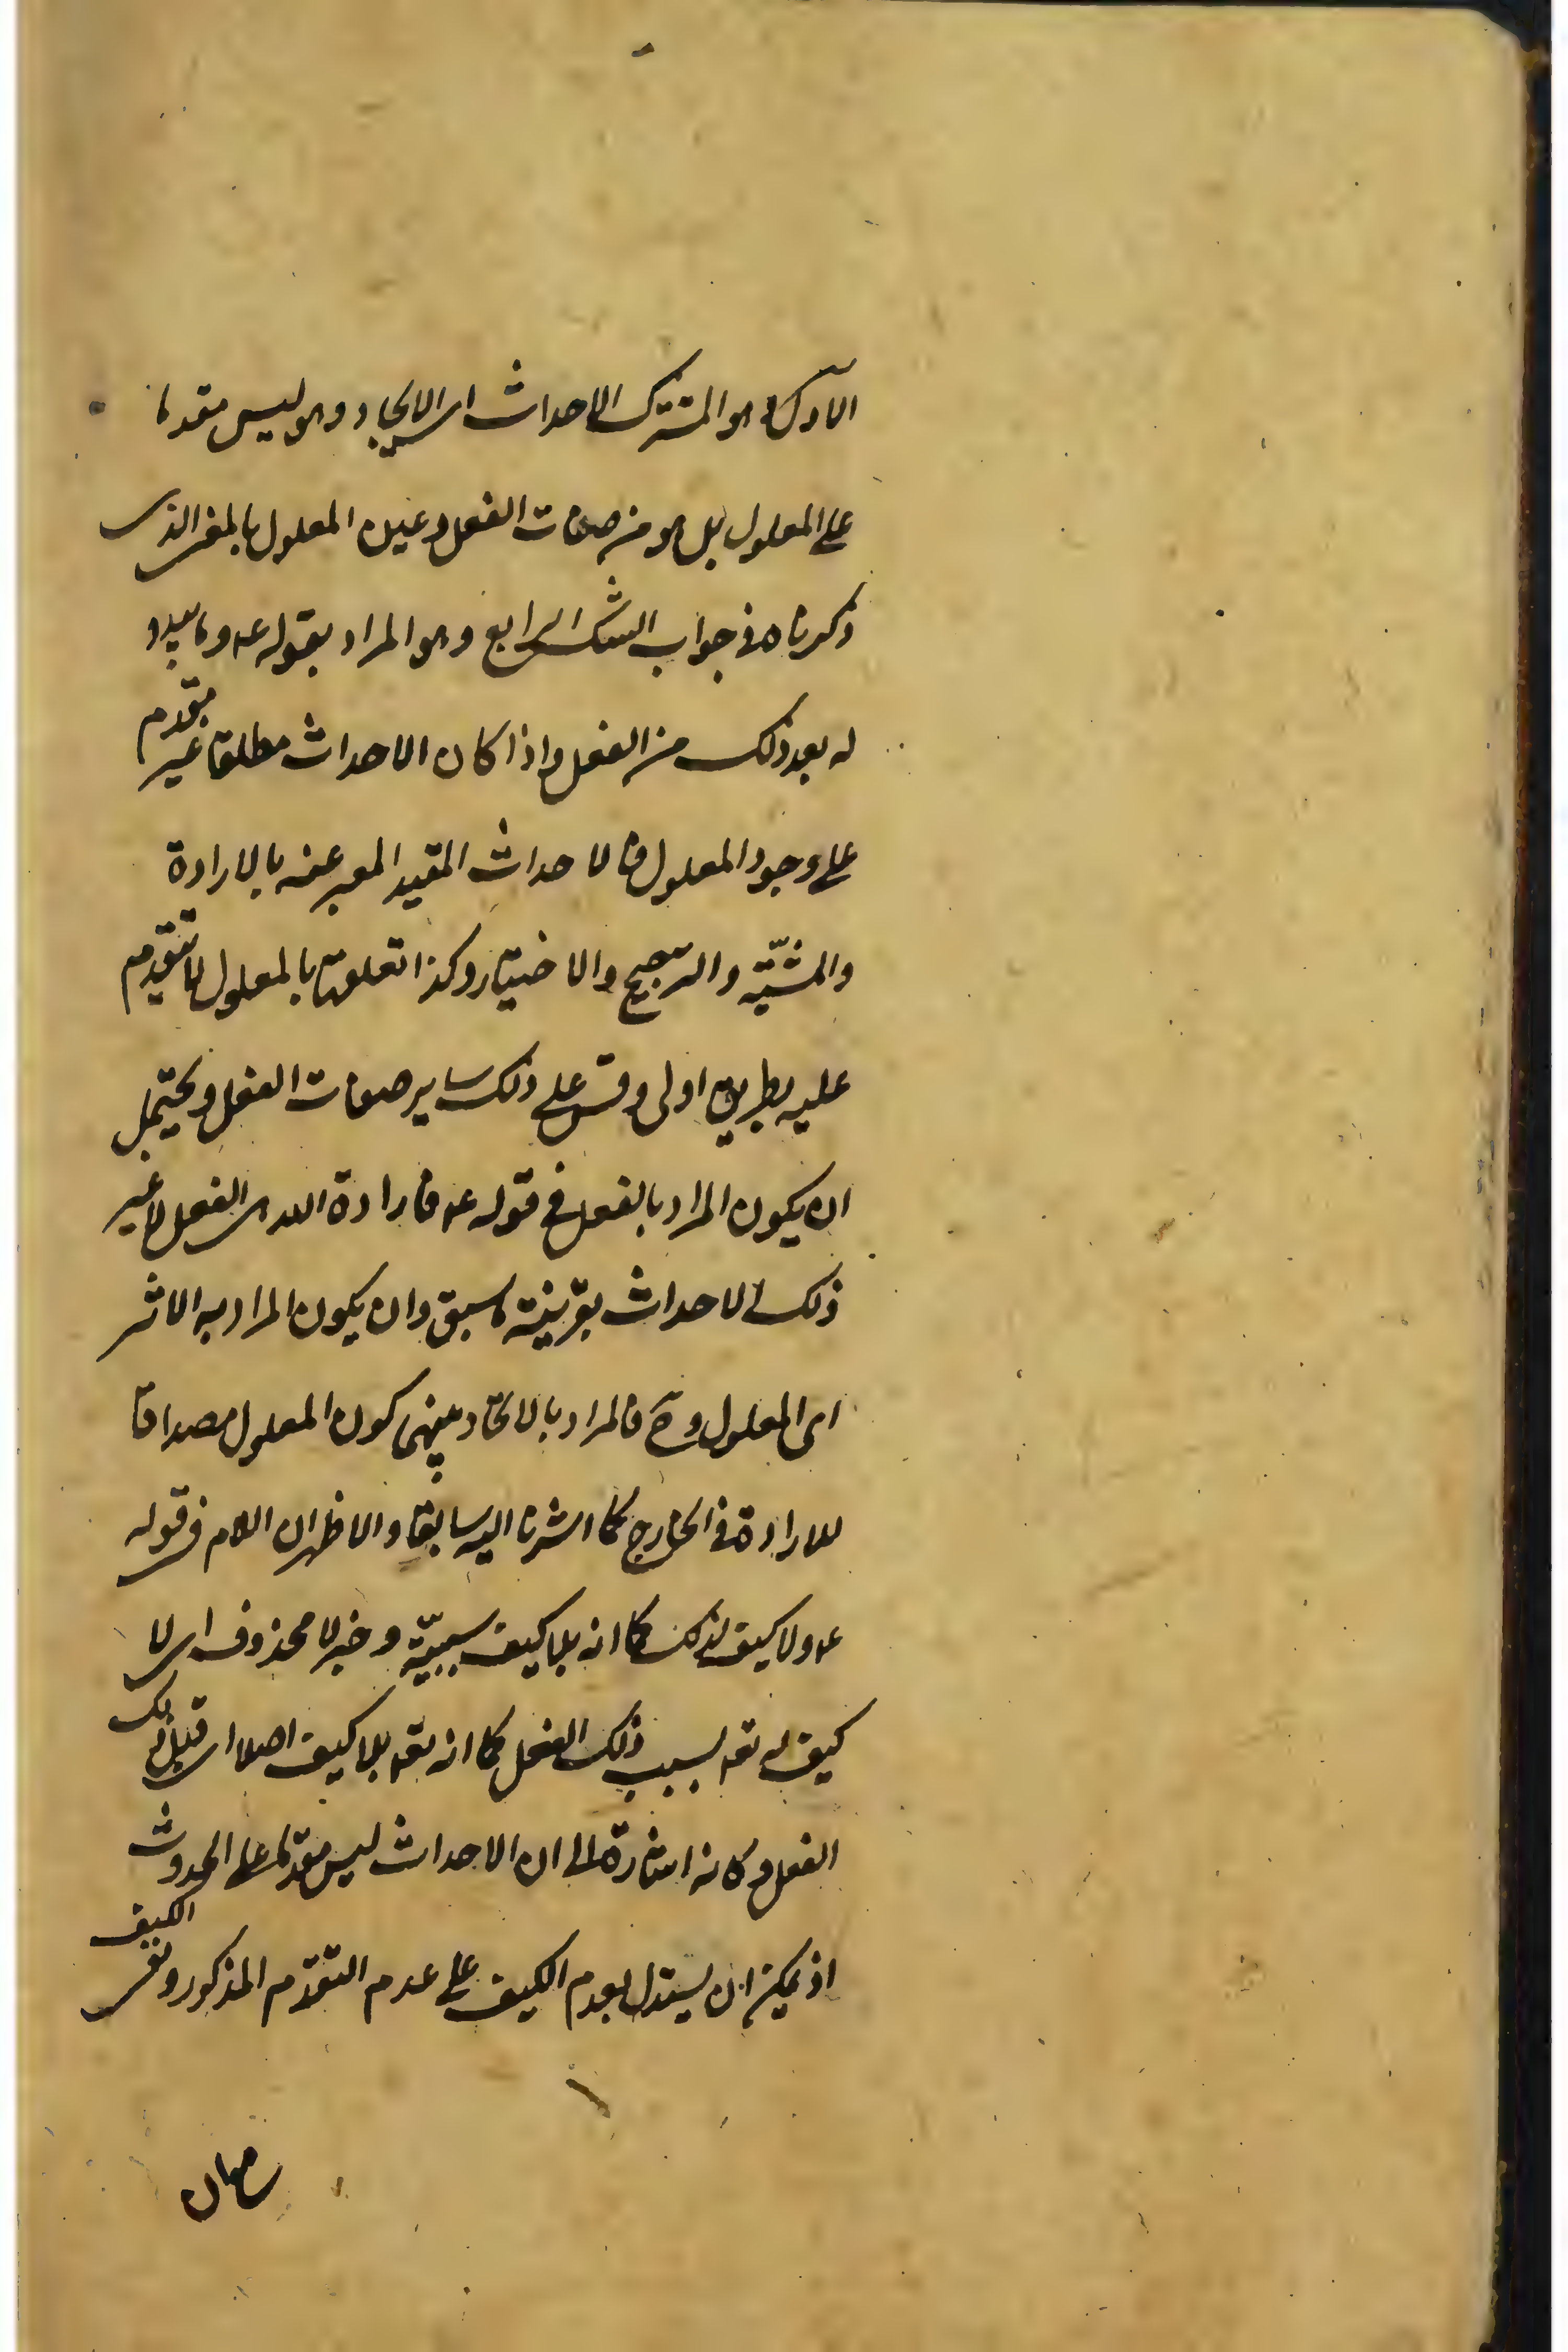 الاول هو المشترك الاحداث اى الايجاد وهو ليس مقدما
على المعلول بل هو من صفات الفعل وعين المعلول بالمعنى الذى
ذكرناه فى جواب الشك الرابع وهو المراد بقوله عه وما يبدو
له بعد ذلك من الفعل واذا كان الاحداث مطلقا غير متقدم
على وجود المعلول فالاحداث المقيد المعبر عنه بالارادة
والمشيّة والترجيح والاختيار وكذا تعلقها بالمعلول لا تتقدم
عليه بطريق اولى وقس على ذلك ساير صفات الفعل ويحتمل
ان يكون المراد بالفعل فى قوله عه فارادة الله هى الفعل لا غير
ذلك الاحداث بقرينة ما سبق وان يكون المراد به الاثر
اى المعلول وح فالمراد بالاتحاد بينهما كون المعلول مصداقا
للارادة فى الخارج كما اشرنا اليه سابقا والاظهر ان اللام فى قوله
عه ولا كيف لذلك كما انه بلا كيف سببيّة وخبر لا محذوف اى لا
كيف له تعه بسبب ذلك الفعل كما انه تعه بلا كيف اصلا اى قبل ذلك
الفعل وكانه اشارة الى ان الاحداث ليس مقدما على الحدوث
اذ يمكن ان يستدل بعدم الكيف على عدم التقدم المذكور ونفى الكيف